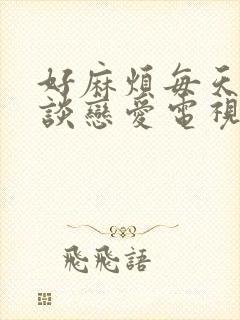 好麻煩每天
談戀愛電視
飛飛語